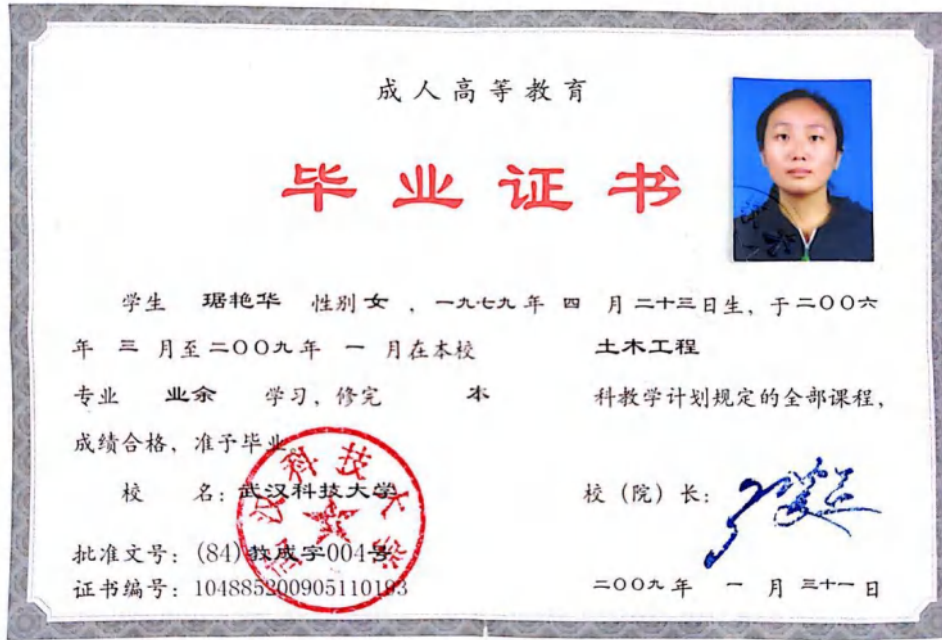 成人高等教育
毕业证书
学生 琚艳华 性别 女 ，一九七九 年 四 月 二十三 日生，于 二〇〇六
年 三 月至 二〇〇九 年 一 月在本校 土木工程
专业 业余 学习，修完 本 科教学计划规定的全部课程，
成绩合格，准予毕业。
校 名：武汉科技大学 校（院）长：
批准文号：(84)教成字004号
证书编号：104885200905110193 二〇〇九 年 一 月 三十一 日
武汉科技大学